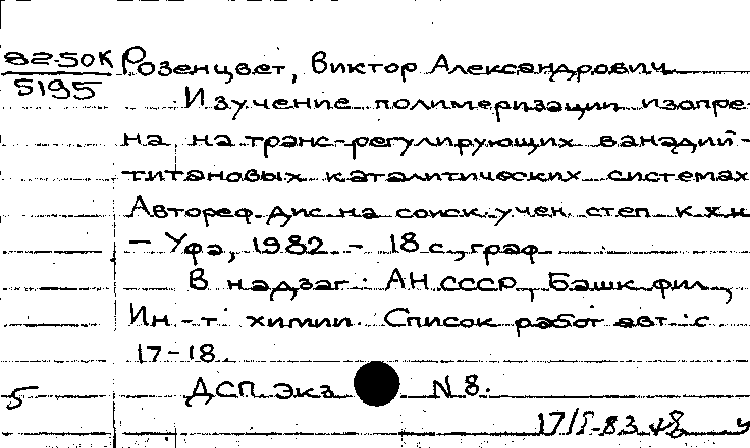 82-50К Розенцвет, Виктор Александрович
5195
Изучение полимеризации изопре-
на на транс-регулирующих ванадий-
титановых каталитических системах
Автореф. дис. на соиск. учен. степ. к.х.н
- Уфа, 1982 - 18 с., граф
В надзаг.: АН СССР, Башк. фил.,
Ин-т химии. Список работ авт.: с.
17-18.
5 ДСП. Экз N 8.
17/I-83